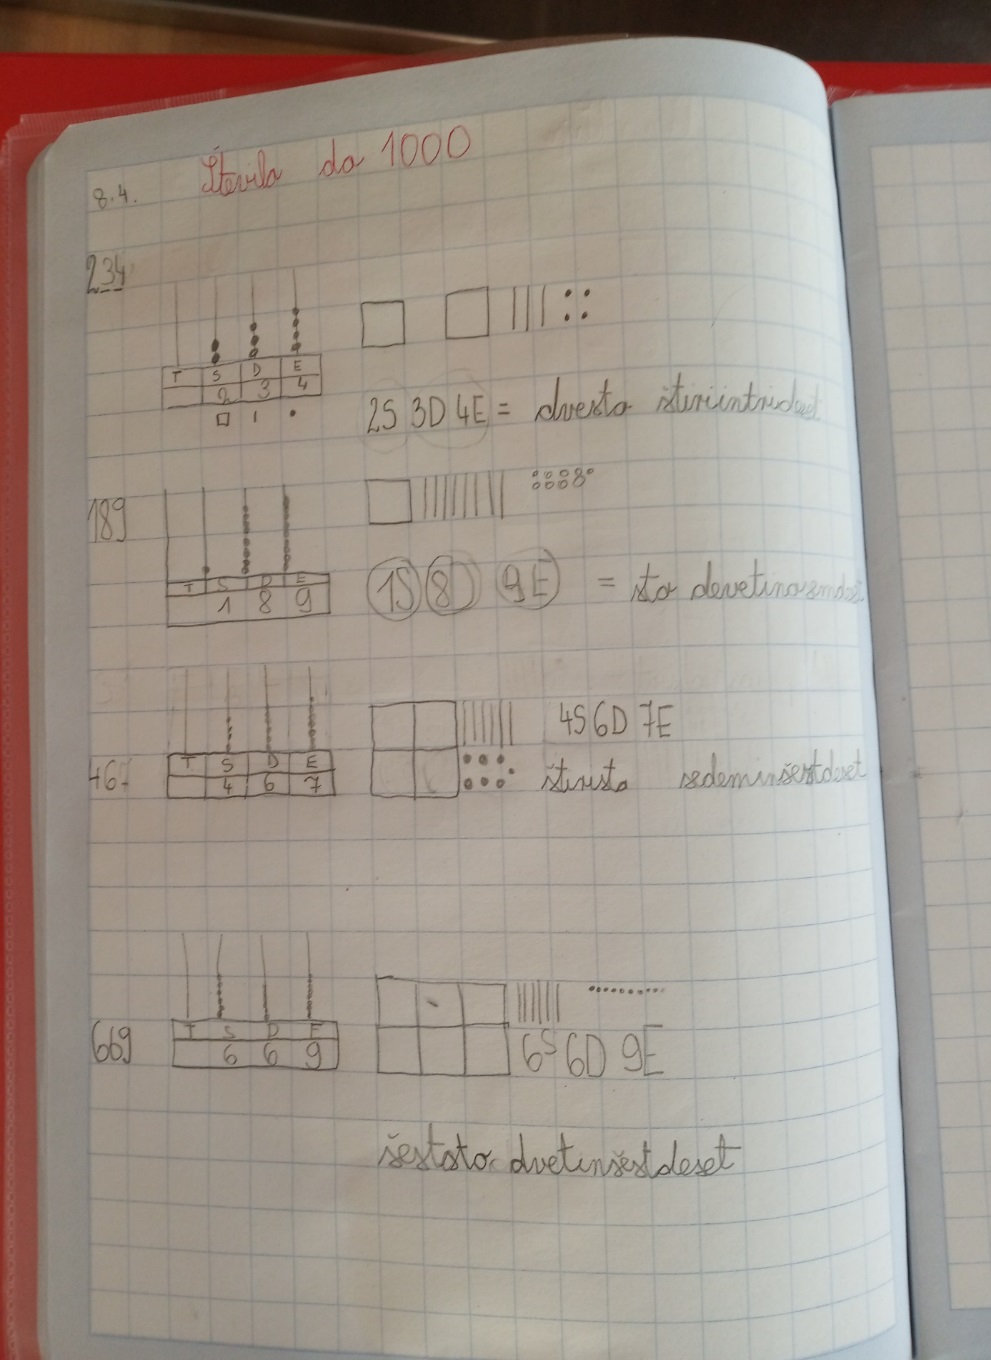 Števila do 1000
8.4.
234
T S D E
2 3 4
2S 3D 4E = dvesto štiriintrideset
189
T S D E
1 8 9
1S 8D 9E = sto devetinosmdeset
467
4S 6D 7E
T S D E
4 6 7
štiristo sedeminšestdeset
669
T S D E
6 6 9
6S 6D 9E
šeststo dvetinšestdeset